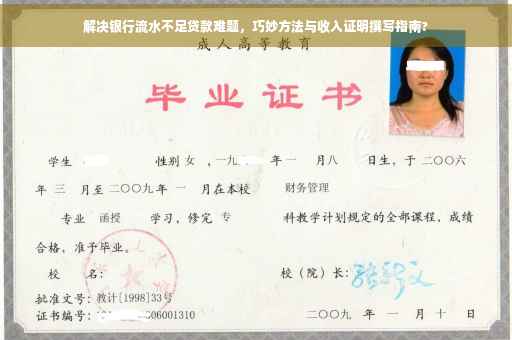 解决银行流水不足贷款难题，巧妙方法与收入证明撰写指南?
成人高等教育
毕业证书
学生 性别 女 ，一九 年 一 月八 日生，于 二〇〇六
年 三 月至 二〇〇九 年 一 月在本校 财务管理
专业 函授 学习，修完 专 科教学计划规定的全部课程，成绩
合格，准予毕业。
校 名： 校（院）长：
批准文号：教计[1998]33号
证书编号： 06001310 二〇〇九 年 一 月 十 日